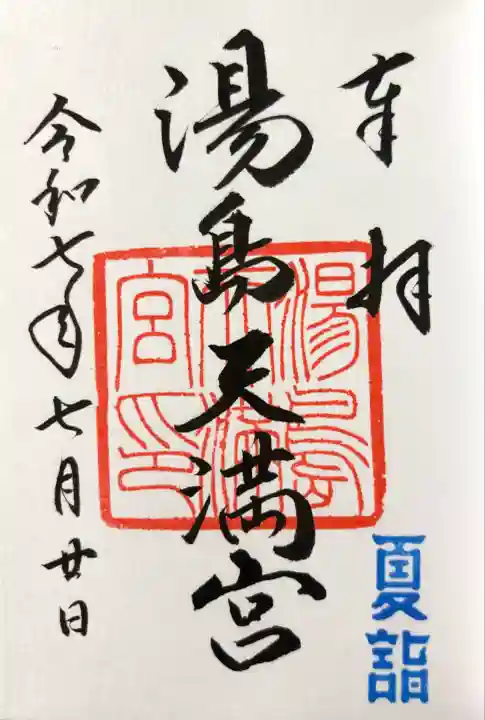 奉拝
夏詣
湯島天満宮
湯島天満宮印
今和七年七月廿日